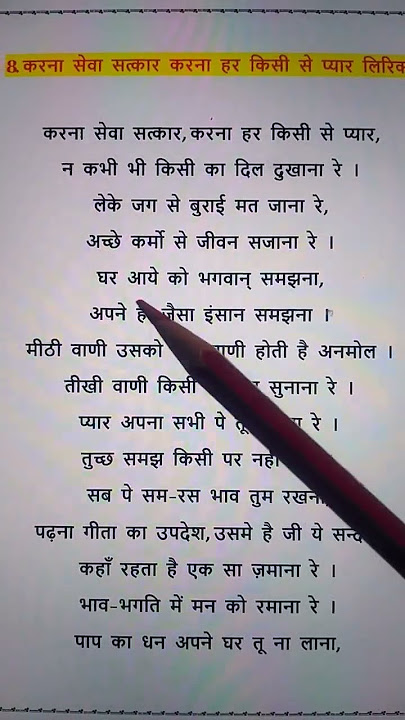 8. करना सेवा सत्कार करना हर किसी से प्यार लिरिक
करना सेवा सत्कार, करना हर किसी से प्यार,
न कभी भी किसी का दिल दुखाना रे ।
लेके जग से बुराई मत जाना रे,
अच्छे कर्मो से जीवन सजाना रे ।
घर आये को भगवान् समझना,
अपने जैसा इंसान समझना ।
मीठी वाणी उसको वाणी होती है अनमोल ।
तीखी वाणी किसी सुनाना रे ।
प्यार अपना सभी पे तू रे ।
तुच्छ समझ किसी पर
सब पे सम-रस भाव तुम रखना,
पढ़ना गीता का उपदेश, उसमे है जी ये
कहाँ रहता है एक सा ज़माना रे ।
भाव-भगति में मन को रमाना रे ।
पाप का धन अपने घर तू ना लाना,